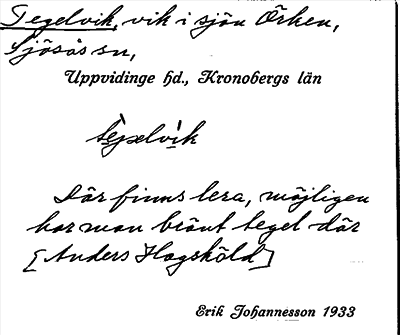 Tegelvik, vik i sjön Örken,
Sjösås sn,
Uppvidinge hd., Kronobergs län
tègelvìk
Där finns lera, möjligen
har man bränt tegel där
[Anders Hagsköld]
Erik Johannesson 1933